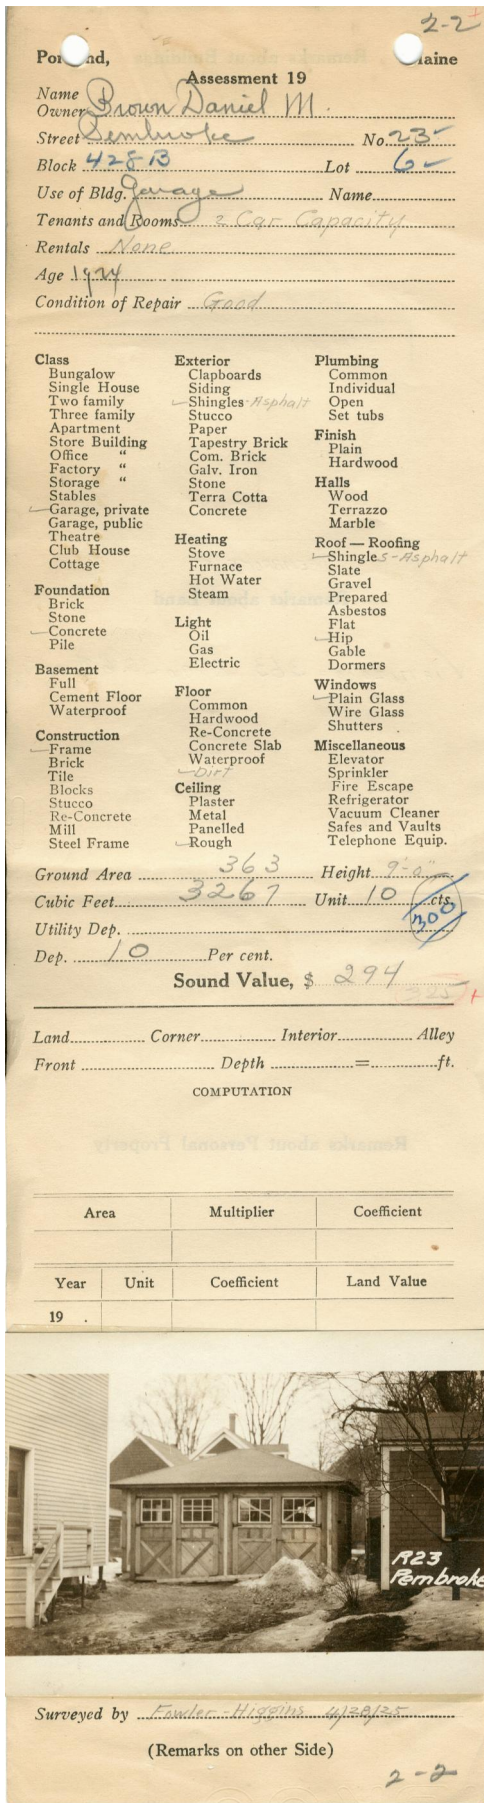 2-2
Portland, Maine
Assessment 19
Name
Owner Brown Daniel M.
Street Pembroke No. 23
Block 428B Lot 6
Use of Bldg. Garage Name
Tenants and Rooms 2 Car Capacity
Rentals None
Age 1924
Condition of Repair Good
Class
Bungalow
Single House
Two family
Three family
Apartment
Store Building
Office "
Factory "
Storage "
Stables
Garage, private
Garage, public
Theatre
Club House
Cottage
Foundation
Brick
Stone
Concrete
Pile
Basement
Full
Cement Floor
Waterproof
Construction
Frame
Brick
Tile
Blocks
Stucco
Re-Concrete
Mill
Steel Frame
Exterior
Clapboards
Siding
Shingles - Asphalt
Stucco
Paper
Tapestry Brick
Com. Brick
Galv. Iron
Stone
Terra Cotta
Concrete
Heating
Stove
Furnace
Hot Water
Steam
Light
Oil
Gas
Electric
Floor
Common
Hardwood
Re-Concrete
Concrete Slab
Waterproof
Dirt
Ceiling
Plaster
Metal
Panelled
Rough
Plumbing
Common
Individual
Open
Set tubs
Finish
Plain
Hardwood
Halls
Wood
Terrazzo
Marble
Roof — Roofing
Shingles - Asphalt
Slate
Gravel
Prepared
Asbestos
Flat
Hip
Gable
Dormers
Windows
Plain Glass
Wire Glass
Shutters
Miscellaneous
Elevator
Sprinkler
Fire Escape
Refrigerator
Vacuum Cleaner
Safes and Vaults
Telephone Equip.
Ground Area 363 Height 9'-0"
Cubic Feet 3267 Unit 10 cts.
300
Utility Dep.
Dep. 10 Per cent.
Sound Value, $ 294
325
Land Corner Interior Alley
Front Depth = ft.
COMPUTATION
Area Multiplier Coefficient
Year Unit Coefficient Land Value
19 .
R23
Pembroke
Surveyed by Fowler-Higgins 4/28/25
(Remarks on other Side)
2-2